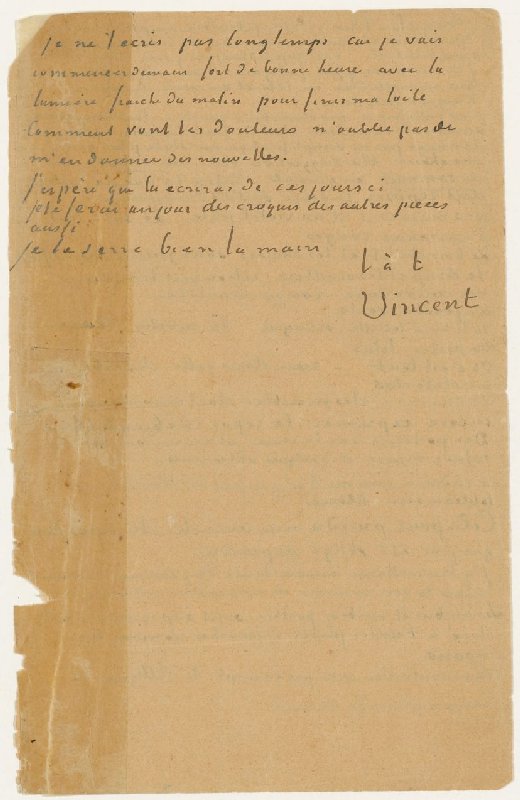 Je ne t'ecris pas longtemps car je vais
commencer demain fort de bonne heure avec la
lumière fraiche du matin pour finir ma toile
Comment vont les douleurs n'oublie pas de
m'en donner des nouvelles.
J'espère que tu ecriras de ces jours ci
je te ferai un jour des croquis des autres pieces
aussi
Je te serre bien la main
t à t
Vincent